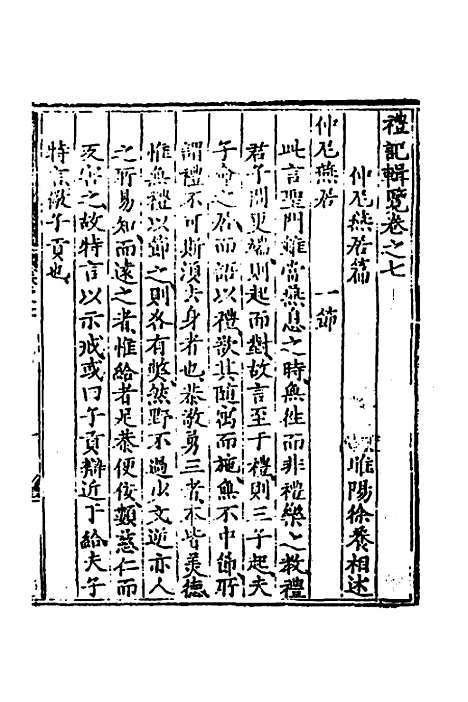 禮記輯覽卷之七
仲尼燕居篇
睢陽徐養相述
仲尼燕居　一節
此言聖門雖當燕息之時無往而非禮樂之教禮
君子問更端則起而對故言至于禮則三子起夫
子命之居而語以禮欲其隨寓而施無不中節所
謂禮不可斯須去身者也恭敬勇三者本皆美德
惟無禮以節之則各有弊然野不過少文逆亦人
之所易知而遠之者惟給者足恭便佞類慈仁而
反害之故特言以示戒或曰子貢辯近于給夫子
特言箴子貢也